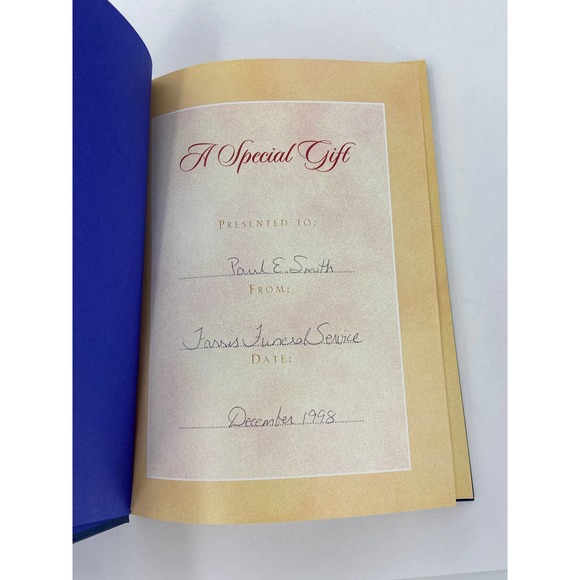 A Special Gift
PRESENTED TO:
Paul E. Smith
FROM:
Farris Funeral Service
DATE:
December 1998